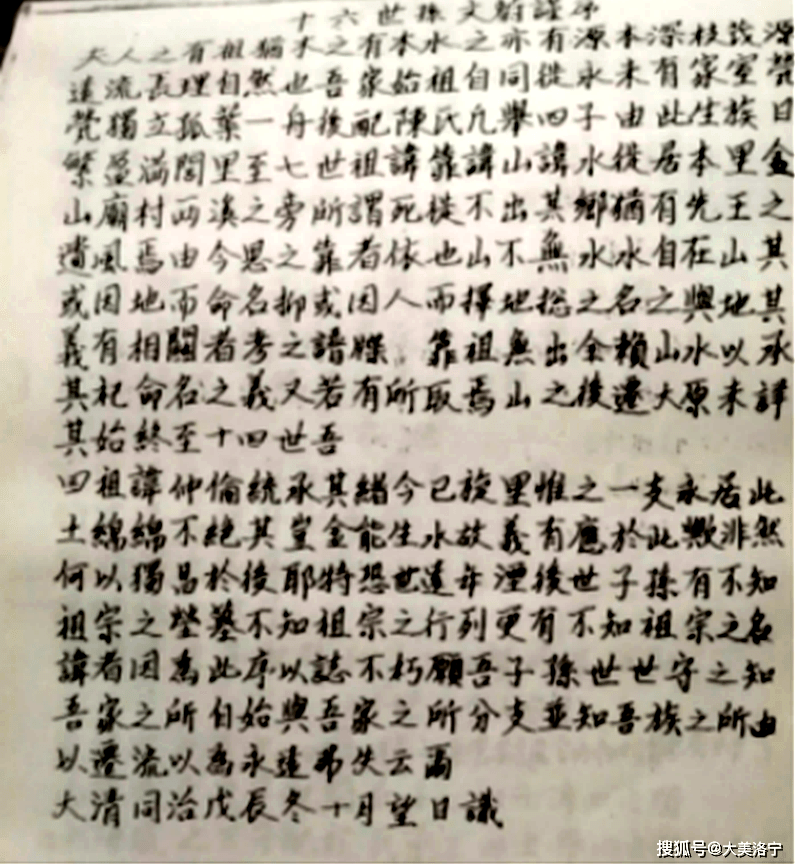 十六世孫文蔚謹序
夫人之有祖猶木之有本水之亦有源本深枝茂源
遠流長理自然也吾家始祖自同徙永未有家室煢
煢獨立孤葉一舟後配陳氏凡舉四子由此生族日
繁盈滿閭里至七世祖諱靠諱山諱水從居本里金
山廟村兩溪之旁所謂死徙不出其鄉猶有先王之
遺風焉由今思之靠者依也山不無水水自在山其
或因地而命名抑或因人而擇地捴之名之與地其
義有相關者考之譜牒靠祖無出全賴山水以承
其祀命名之義又若有所取焉山之後遷大原未詳
其始終至十四世吾
四祖諱仲倫統承其緒今已旋里惟之一支永居此
土綿綿不絕其豈金能生水故義有應於此歟非然
何以獨昌於後耶特恐世遠年湮後世子孫有不知
祖宗之塋墓不知祖宗之行列更有不知祖宗之名
諱者因為此序以誌不朽願吾子孫世世守之知
吾家之所自始與吾家之所分支並知吾族之所由
以遷流以為永遠弗失云爾
大清同治戊辰冬十月望日識
搜狐号@大美洛宁